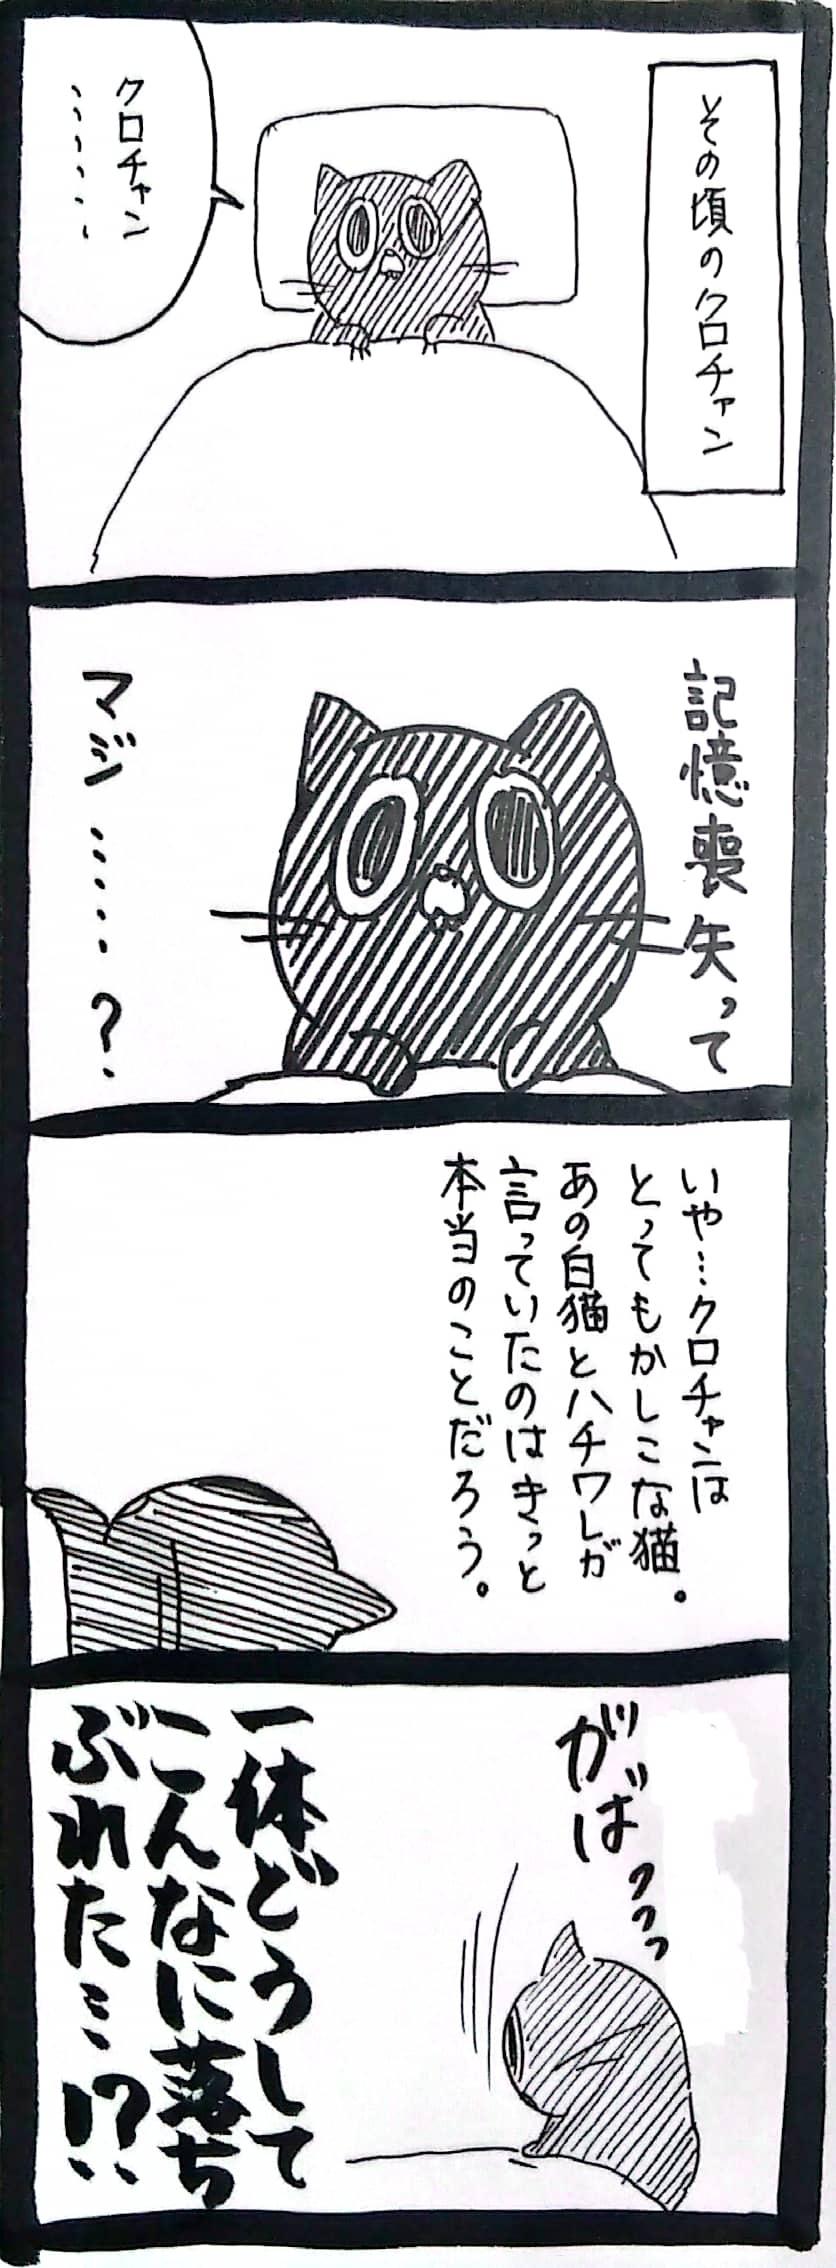 その頃のクロチャン
クロチャン
……
記憶喪失って
マジ……？
いや…クロチャンは
とってもかしこな猫。
あの白猫とハチワレが
言っていたのはきっと
本当のことだろう。
がばっっっ
一体どうして
こんなに落ち
ぶれた…!?